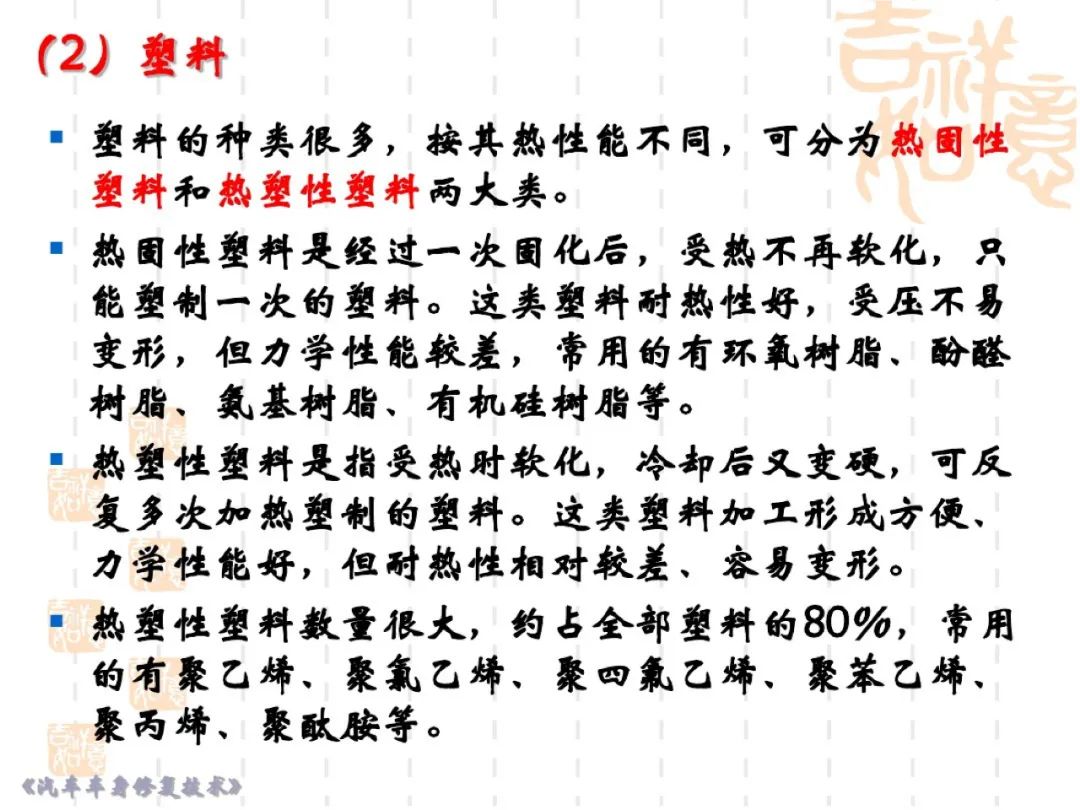 （2）塑料
吉祥
如意
塑料的种类很多，按其热性能不同，可分为热固性
塑料和热塑性塑料两大类。
热固性塑料是经过一次固化后，受热不再软化，只
能塑制一次的塑料。这类塑料耐热性好，受压不易
变形，但力学性能较差，常用的有环氧树脂、酚醛
树脂、氨基树脂、有机硅树脂等。
热塑性塑料是指受热时软化，冷却后又变硬，可反
复多次加热塑制的塑料。这类塑料加工形成方便、
力学性能好，但耐热性相对较差、容易变形。
热塑性塑料数量很大，约占全部塑料的80%，常用
的有聚乙烯、聚氯乙烯、聚四氟乙烯、聚苯乙烯、
聚丙烯、聚酞胺等。
《汽车车身修复技术》